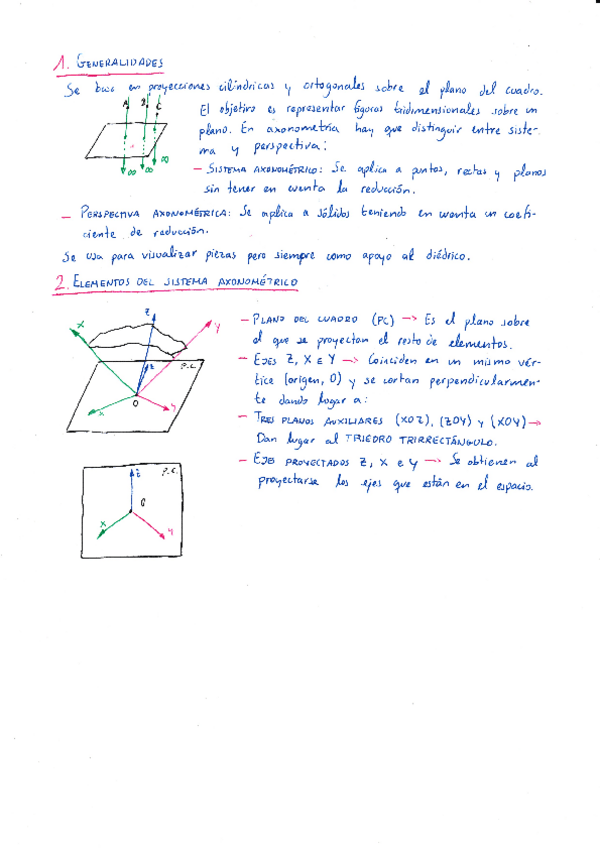 1. GENERALIDADES
Se basa en proyecciones cilíndricas y ortogonales sobre el plano del cuadro.
A B C
El objetivo es representar figuras tridimensionales sobre un
plano. En axonometría hay que distinguir entre siste-
ma y perspectiva:
∞ ∞ ∞
- SISTEMA AXONOMÉTRICO: Se aplica a puntos, rectas y planos
sin tener en cuenta la reducción.
- PERSPECTIVA AXONOMÉTRICA: Se aplica a sólidos teniendo en cuenta un coefi-
ciente de reducción.
Se usa para visualizar piezas pero siempre como apoyo al diédrico.
2. ELEMENTOS DEL SISTEMA AXONOMÉTRICO
X Z Y
P.C.
Z
O
X Y
- PLANO DEL CUADRO (PC) → Es el plano sobre
el que se proyectan el resto de elementos.
- EJES Z, X E Y → Coinciden en un mismo vér-
tice (origen, O) y se cortan perpendicularmen-
te dando lugar a:
- TRES PLANOS AUXILIARES (XOZ), (ZOY) y (XOY) →
Dan lugar al TRIEDRO TRIRRECTÁNGULO.
- EJES PROYECTADOS Z, X e Y → Se obtienen al
proyectarse los ejes que están en el espacio.
Z P.C.
O
X Y